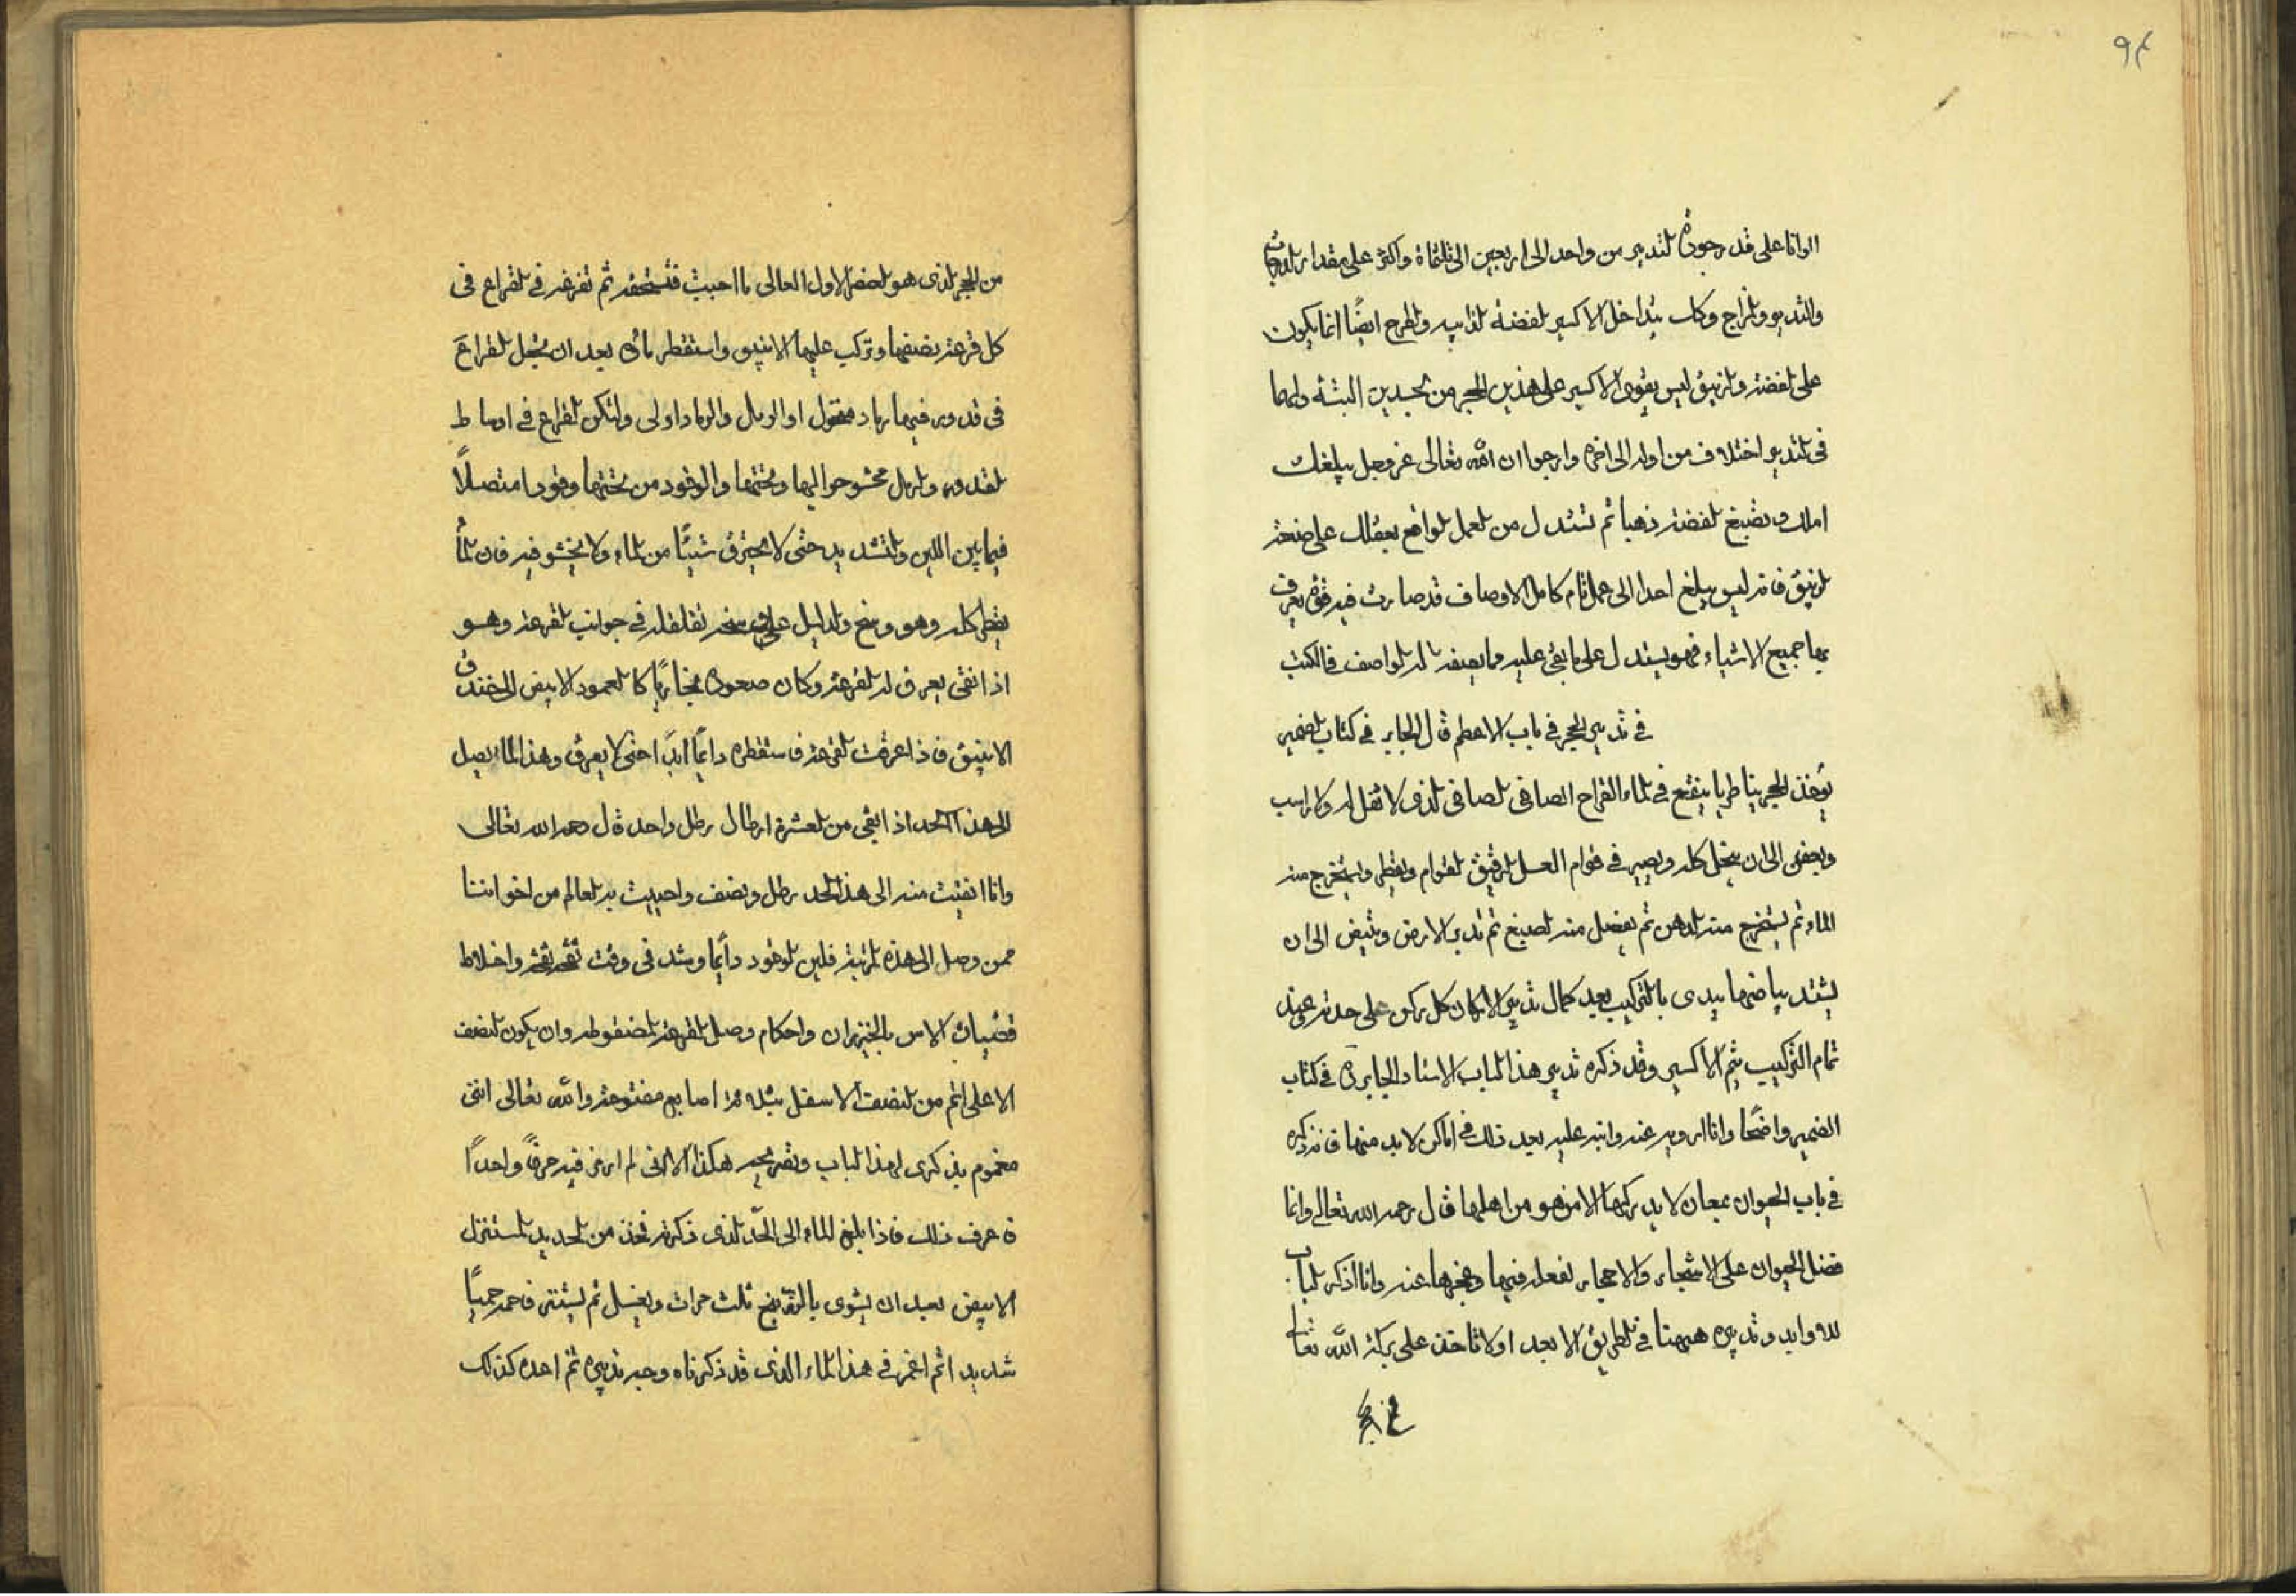 ٩٤
الوانا على قدر جودة لتدبير من واحد الى اربعين الى ثلثماة واكثر على مقدار
والتدبير والمزاج وكان يداخل الاكسير لفضة لذايبه والطرح ايضًا انما يكون
على لفضة ولزيبق ليس يقوى الاكسير على هذين الحجر من البتة ولهما
فى لتدبير اختلاف من اوله الى اخره وارجوا ان الله تعالى عز وجل يبلغك
املك وتصبغ لفضة ذهبا ثم تستدل من لعمل لواقع بعقلك على صنعة
لزيبق فانه ليس يبلغ احدا الى عمل تام كامل الاوصاف قد صارت فيه قوة يعرف
بها جميع الاشياء فهو يستدل على ما بقى عليه وما يصفه له لواصف فى الكتب
فى تدبير الحجر فى باب الاعظم قال الجابر فى كتاب لضمير
يؤخذ الحجر ينقع فى لماء القراح الصافى لصافى لذى لا ثفل له ولا راسب
ويعفن الى ان ينحل كله ويصير فى قوام العسل لرقيق لقوام ويقطر ويستخرج منه
الماء ثم يستخرج منه لدهن ثم يفصل منه لصبغ ثم تدبر الارض وتبيض الى ان
يشتد بياضها يبدى بالتركيب بعد كمال تدبير الاركان كل ركن على حدته وعند
تمام التركيب يتم الاكسير وقد ذكره تدبير هذا لباب الاستاد الجابرة فى كتاب
الضمير واضحًا وانا ارويه عنه وانبه عليه بعد ذلك فى اماكن لا بد منها فانه ذكره
فى باب الحيوان بمعان لا يدركها الا من هو من اهلها قال رحمه الله تعالى وانما
فضل الحيوان على الاشجار والاحجار لفعله فيها وعجزها عنه وانا اذكر لباب
له وابد وتدبيره ههنا فى لطريق الابعد اولا تاخذ على بركة الله تعا
من الحجر لذى هو لحضر الاول العالى ما احببت فتسحقه ثم تفرغه فى لقراع فى
كل قرعة نصفها وتركب عليها الانبيق واستقطر مائه بعد ان تجعل لقراع
فى قدور فيها رماد منخول او الرمل والرماد اولى ولتكن لقراع فى اوساط
لقدور ولرمل محشو حواليها وتحتها والوقود من تحتها وقودا متصلاً
فيما بين اللين ولتشديد حتى لا يحترق شيئًا من لماء ولا يخشو فيه فان لماء
يقطر كله وهو وسخ ولدليل على وسخه تقلقله فى جوانب لقرعة وهو
اذا نقى يعرق له لقرعة وكان صعوده بخاريًا كا لعمود الابيض الى خندق
الانبيق فاذا عرقت لقرعة فاستقطره دايمًا ابدًا حتى لا يعرق وهذا الماء يصل
الى هذا الحد اذا بقى من لعشرة ارطال رطل واحد قال رحمه الله تعالى
وانا ابقيت منه الى هذا لحد رطل ونصف واحييت به لعالم من اخواننا
ممن وصل الى هذه لرتبة فلين لوقود دايمًا وشد فى وقت واخلاط
قضبان الاس بالخيزران واحكام وصل لقرعة لمضغوطه وان يكون لنصف
الاعلى اتم من لنصف الاسفل بثلاثة اصابع مفتوحة والله تعالى انى
مغموم بذكرى لهذا لباب وتصريحه هكذا لانى لم ارمز فيه حرفًا واحدًا
فاعرف ذلك فاذا بلغ الماء الى الحد لذى ذكرته فخذ من لحديد لمستنزل
الابيض بعد ان يشوى بالزرنيخ ثلث مرات ويغسل ثم يستنزل فاحمه حميًا
شديدا ثم اغمره فى هذا لماء الذى قد ذكرناه وجه تدبيره ثم احده كذلك